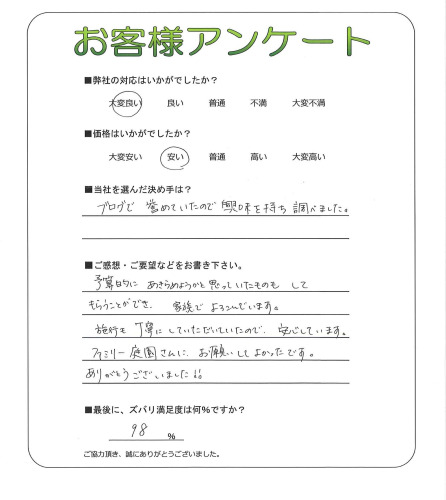 お客様アンケート
■弊社の対応はいかがでしたか？
大変良い 良い 普通 不満 大変不満
■価格はいかがでしたか？
大変安い 安い 普通 高い 大変高い
■当社を選んだ決め手は？
ブログで 誉めていたので 興味を持ち 調べました。
■ご感想・ご要望などをお書き下さい。
予算的に あきらめようかと思っていたものも して
もらうことができ、 家族で よろこんでいます。
施行も 丁寧に していただいていたので、 安心しています。
ファミリー庭園さんに お願いしてよかったです。
ありがとうございました!!
■最後に、ズバリ満足度は何%ですか？
98 %
ご協力頂き、誠にありがとうございました。